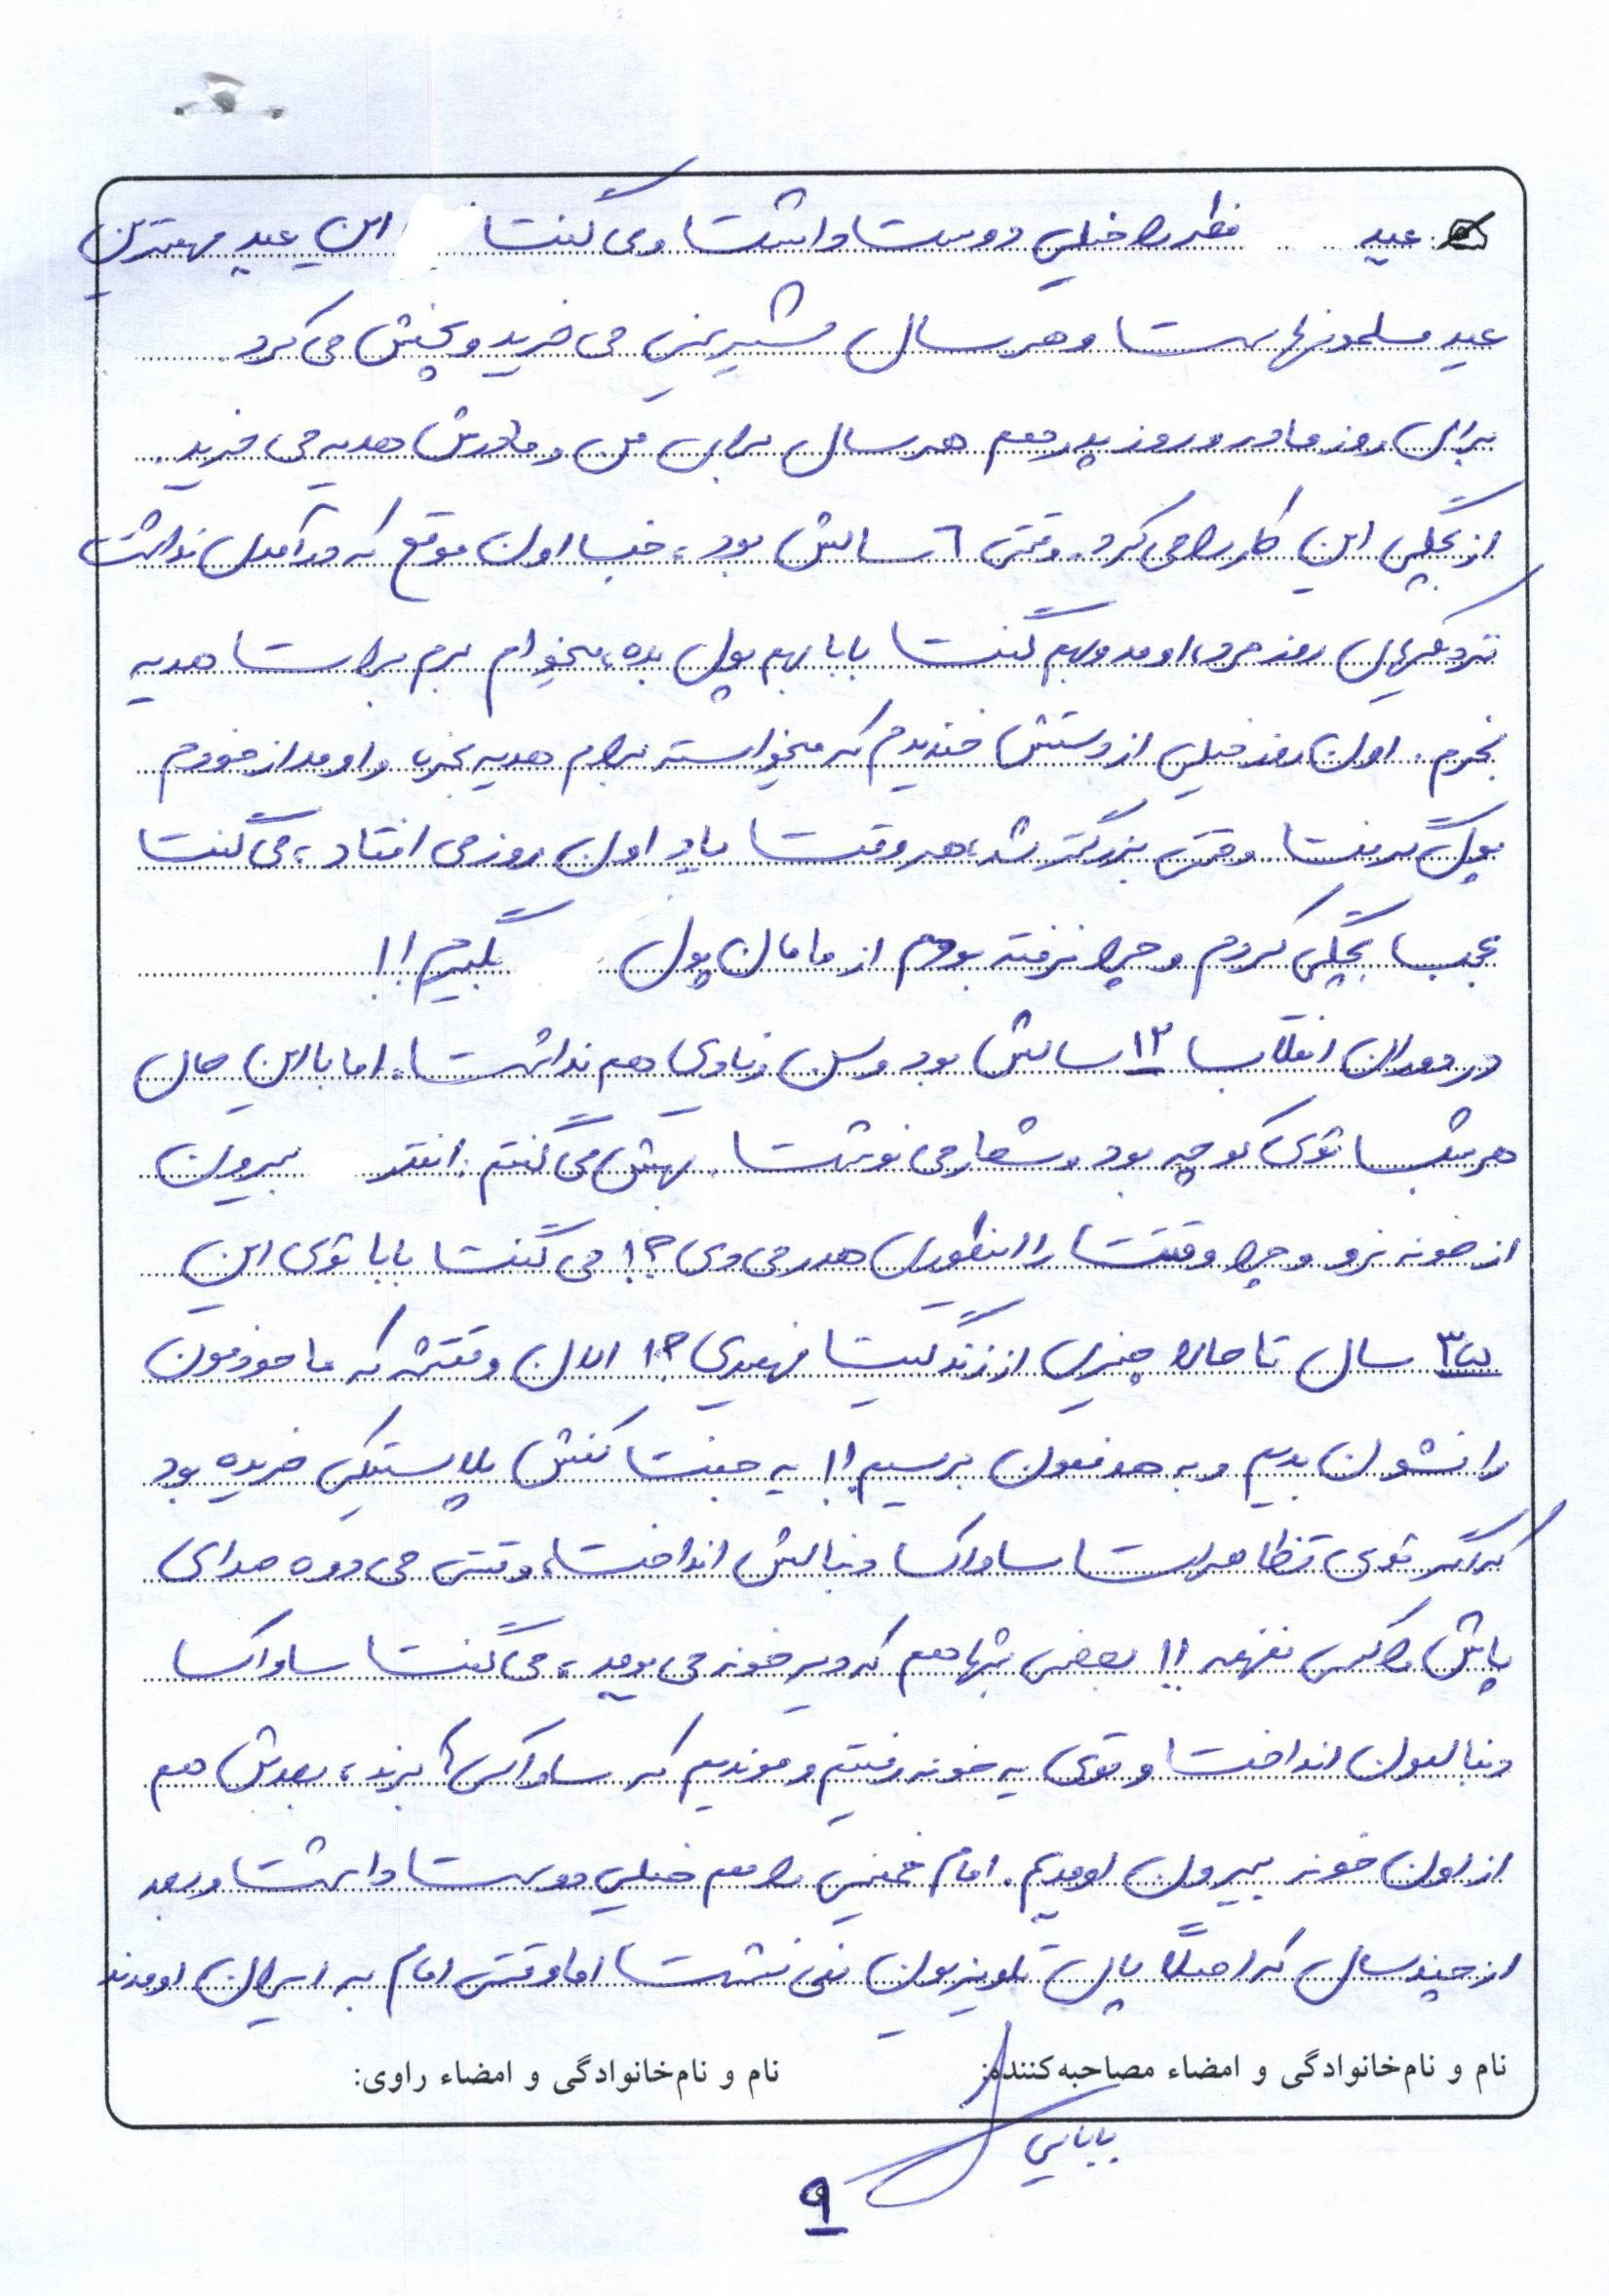 عید فطر را خیلی دوست داشت و می گفت: این عید مهمترین
عید مسلمونهاست و هر سال شیرینی می خرید و پخش می کرد.
برای روز مادر و روز پدر هم هر سال برای من و مادرش هدیه می خرید.
از بچگی این کار را می کرد. وقتی ٦ سالش بود، خب اون موقع که درآمدی نداشت
نزدیکهای روز مرد، اومد و بهم گفت بابا بهم پول بده، میخوام برم برات هدیه
بخرم. اون روز خیلی از دستش خندیدم که میخواست برام هدیه بخره و اومد از خودم
پول گرفت. وقتی بزرگتر شد، هر وقت یاد اون روز می افتاد، می گفت
عجب بچگی کردم و چرا نرفته بودم از مامان پول بگیرم!!
در دوران انقلاب ۱۳ سالش بود و سن زیادی هم نداشت. اما با این حال
هر شب توی کوچه بود و شعار می نوشت. بهش می گفتم: انقدر بیرون
از خونه نرو و چرا وقتت را اینطوری هدر می دی؟! می گفت بابا توی این
۳۵ سال تا حالا چیزی از زندگیت فهمیدی؟! الان وقتشه که ما خودمون
را نشون بدیم و به هدفمون برسیم!! یه جفت کفش پلاستیکی خریده بود
که اگر توی تظاهرات ساواک دنبالش انداخت، وقتی می دوه صدای
پاش را کسی نفهمه!! بعضی شبها هم که دیر خونه می یومد، می گفت ساواک
دنبالمون انداخت و توی یه خونه رفتیم و موندیم که ساواکی ها برند، بعدش هم
از اون خونه بیرون اومدیم. امام خمینی را هم خیلی دوست داشت و بعد
از چند سال که اصلاً پای تلویزیون نمی نشست اما وقتی امام به ایران اومدند
نام و نام‌خانوادگی و امضاء مصاحبه‌کننده: نام و نام‌خانوادگی و امضاء راوی:
بابایی
۹